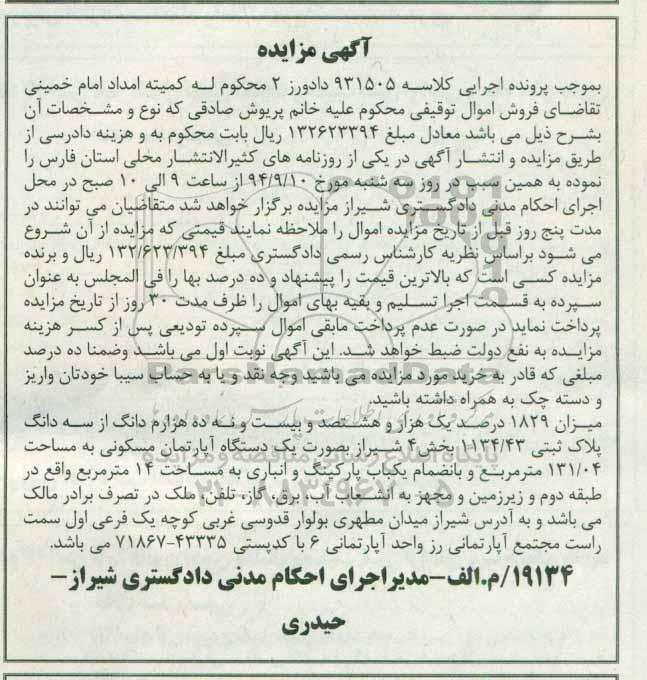 آگهی مزایده
بموجب پرونده اجرایی کلاسه ۹۳۱۵۰۵ دادورز ۲ محکوم له کمیته امداد امام خمینی
تقاضای فروش اموال توقیفی محکوم علیه خانم پریوش صادقی که نوع و مشخصات آن
بشرح ذیل می باشد معادل مبلغ ۱۳۲۶۲۳۳۹۴ ریال بابت محکوم به و هزینه دادرسی از
طریق مزایده و انتشار آگهی در یکی از روزنامه های کثیرالانتشار محلی استان فارس را
نموده به همین سبب در روز سه شنبه مورخ ۹۴/۹/۱۰ از ساعت ۹ الی ۱۰ صبح در محل
اجرای احکام مدنی دادگستری شیراز مزایده برگزار خواهد شد متقاضیان می توانند در
مدت پنج روز قبل از تاریخ مزایده اموال را ملاحظه نمایند قیمتی که مزایده از آن شروع
می شود براساس نظریه کارشناس رسمی دادگستری مبلغ ۱۳۲/۶۲۳/۳۹۴ ریال و برنده
مزایده کسی است که بالاترین قیمت را پیشنهاد و ده درصد بها را فی المجلس به عنوان
سپرده به قسمت اجرا تسلیم و بقیه بهای اموال را ظرف مدت ۳۰ روز از تاریخ مزایده
پرداخت نماید در صورت عدم پرداخت مابقی اموال سپرده تودیعی پس از کسر هزینه
مزایده به نفع دولت ضبط خواهد شد. این آگهی نوبت اول می باشد وضمنا ده درصد
مبلغی که قادر به خرید مورد مزایده می باشید وجه نقد و یا به حساب سیبا خودتان واریز
و دسته چک به همراه داشته باشید.
میزان ۱۸۲۹ درصد یک هزار و هشتصد و بیست و نه ده هزارم دانگ از سه دانگ
پلاک ثبتی ۱۱۳۴/۴۳ بخش ۴ شیراز بصورت یک دستگاه آپارتمان مسکونی به مساحت
۱۳۱/۰۴ مترمربع و بانضمام یکباب پارکینگ و انباری به مساحت ۱۴ مترمربع واقع در
طبقه دوم و زیرزمین و مجهز به انشعاب آب، برق، گاز، تلفن، ملک در تصرف برادر مالک
می باشد و به آدرس شیراز میدان مطهری بولوار قدوسی غربی کوچه یک فرعی اول سمت
راست مجتمع آپارتمانی رز واحد آپارتمانی ۶ با کدپستی ۴۳۳۳۵-۷۱۸۶۷ می باشد.
۱۹۱۳۴/م.الف-مدیراجرای احکام مدنی دادگستری شیراز-
حیدری
ParsNamadData